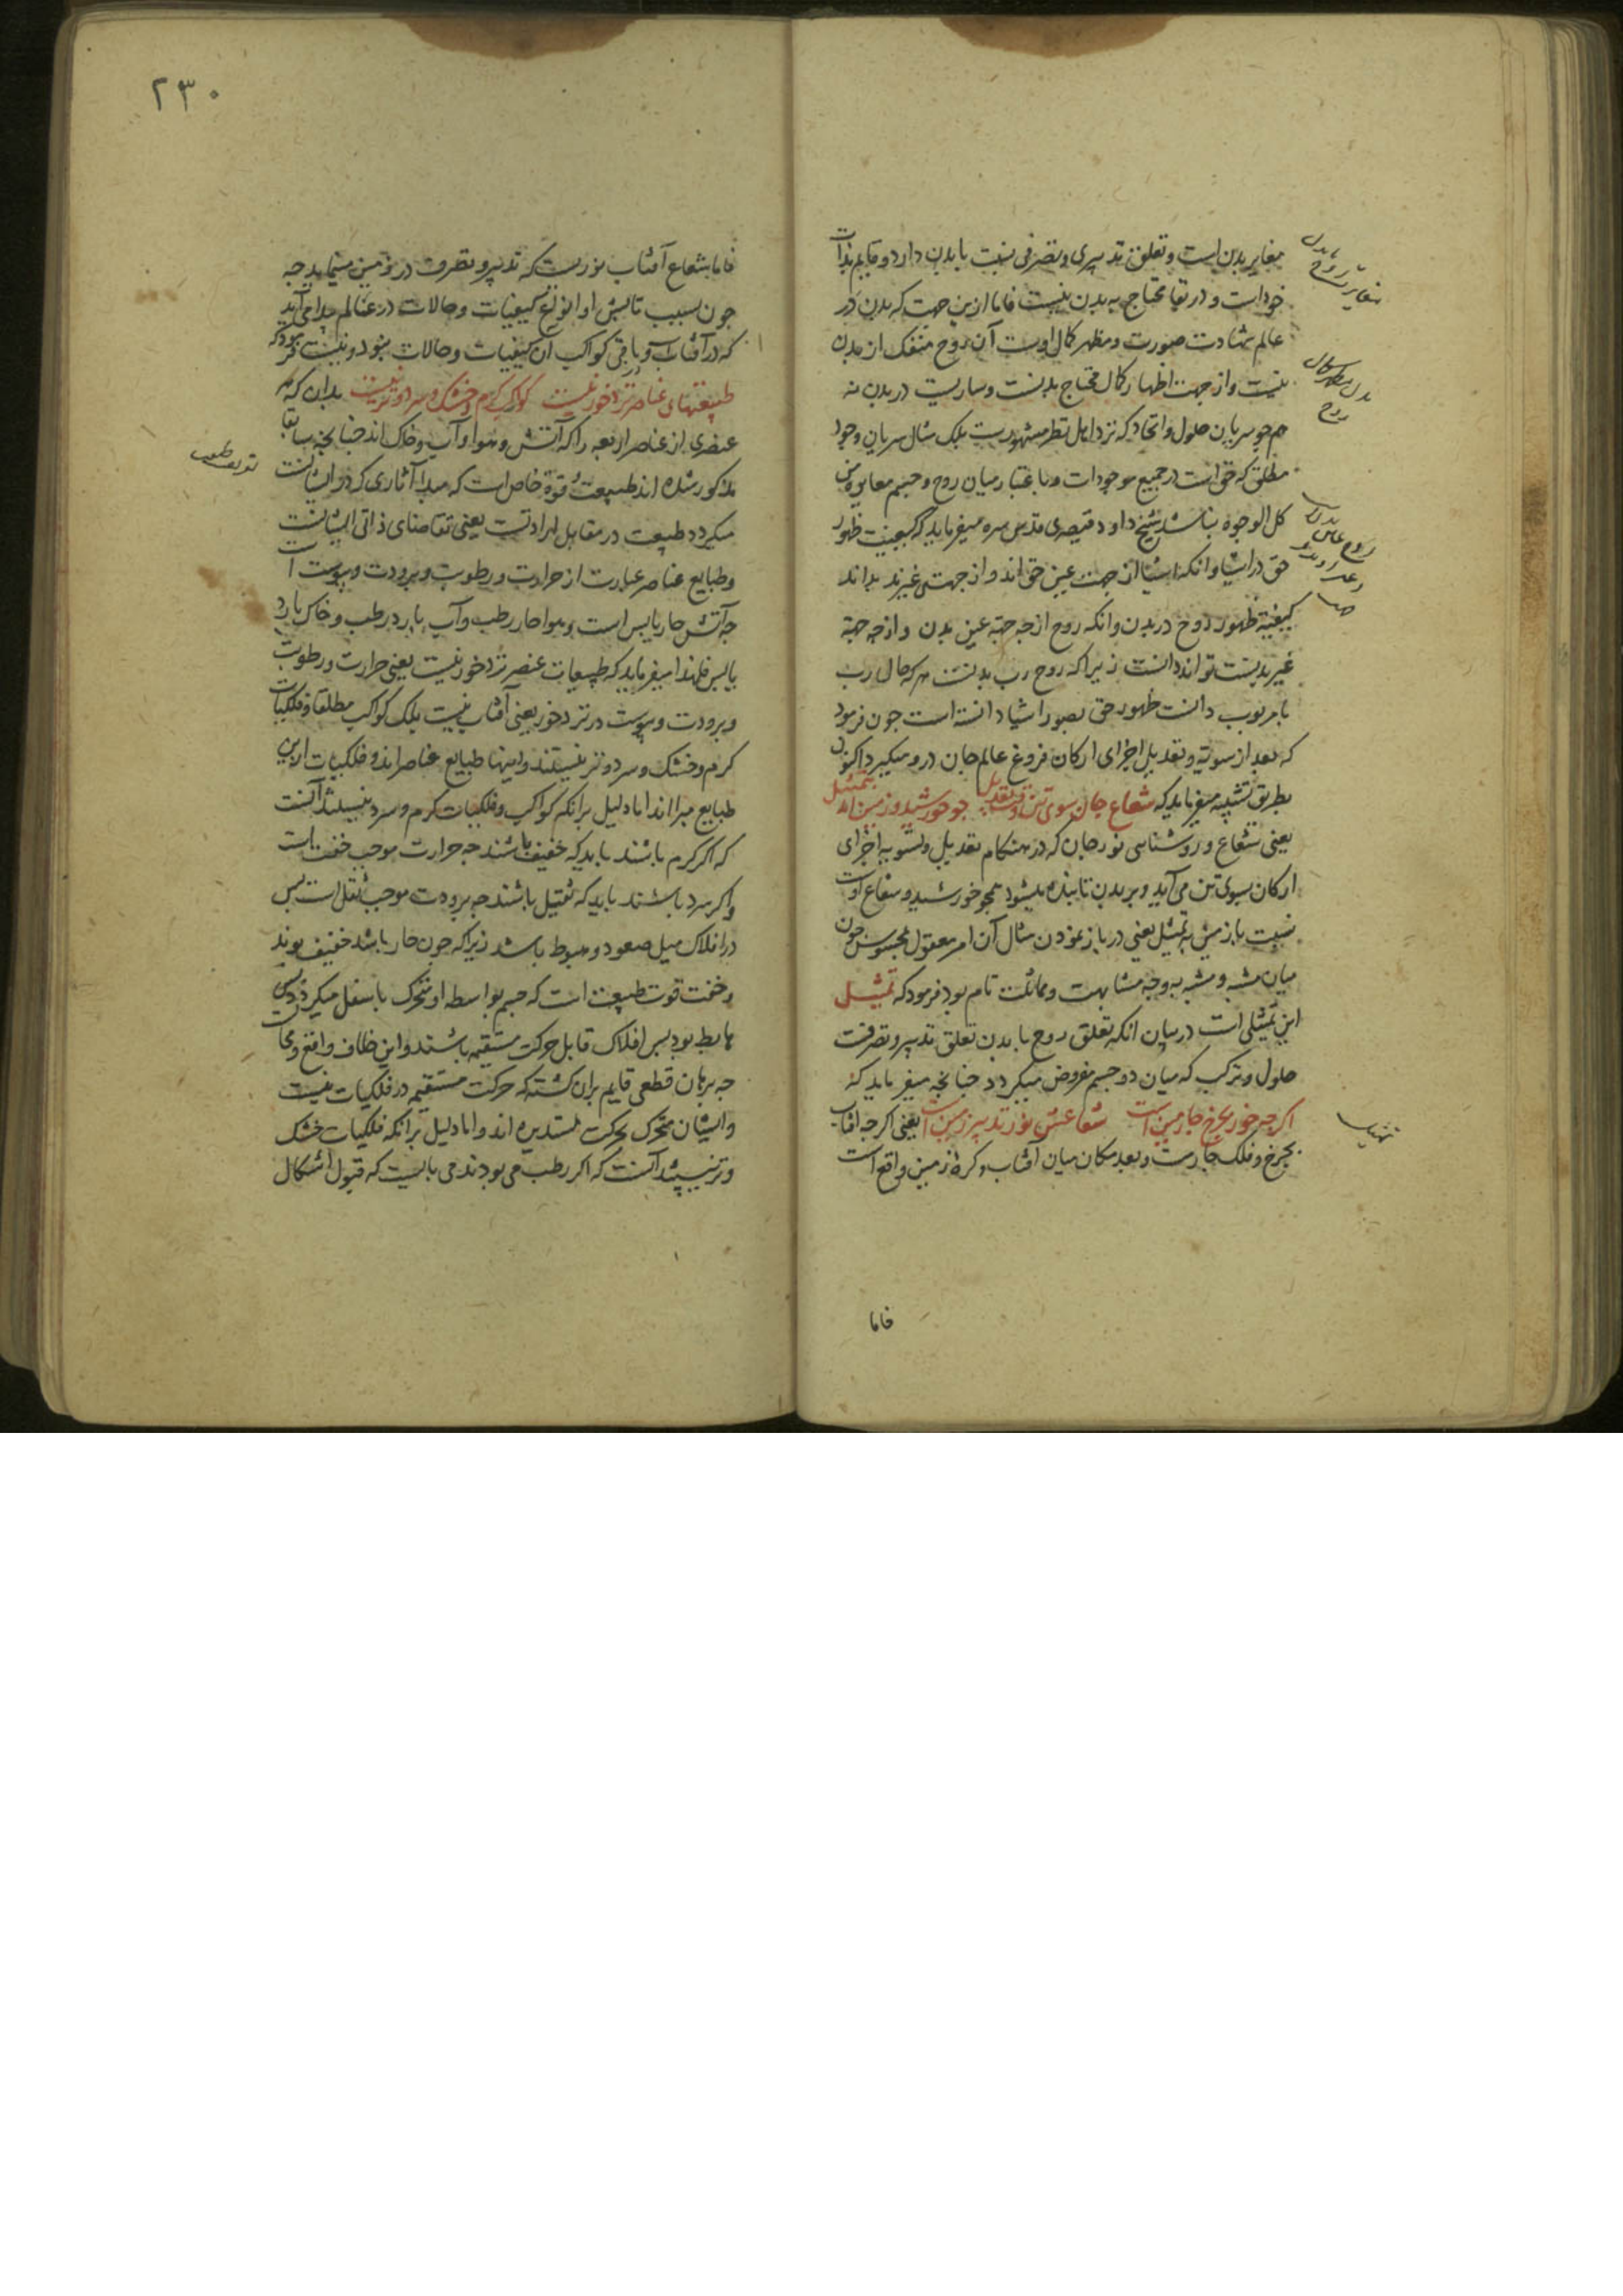 مغایر بدن است و تعلق تدبیری و تصرفی نسبت با بدن دارد و قایم بذات
خود است و در بقا محتاج به بدن نیست فاما ازین جهت که بدن در
عالم شهادت صورت و مظهر کمال اوست آن روح منفک از بدن
نیست و از جهت اظهار کمال محتاج بدنست و ساریست در بدن نه
همچو سریان حلول و اتحاد که نزد اهل نظر مشهورست بلک مثال سریان وجود
مطلق که حق است در جمیع موجودات و با عتبار میان روح و جسم مغایره من
کل الوجوه نباشد شیخ داود قیصری قدس سره میفرماید که کیفیت ظهور
حق در اشیا و انکه اشیا از جهت عین حق اند و از جهتی غیرند بداند
کیفیة ظهور روح در بدن و انکه روح از چه جهة عین بدن و از چه جهة
غیر بدنست تواند دانست زیرا که روح رب بدنست هر که حال رب
با مربوب دانست ظهور حق بصور اشیا دانسته است جون فرمود
که بعد از تسویه و تعدیل اجزای ارکان فروغ عالم جان درو میکیرد اکنون
بطریق تشبیه میفرماید که شعاع جان سوی تن وقت تعدیل جو خورشید و زمین آمد بتمثیل
یعنی شعاع و روشناسی نور جان که در هنکام تعدیل و تسویه اجزای
ارکان بسوی تن می آید و بر بدن تابنده میشود همجو خورشید و شعاع اوست
نسبت با زمین به تمثیل یعنی در باز نمودن مثال آن امر معقول بمحسوس جون
میان مشبه و مشبه به وجه مشابهت و مماثلت تام بود فرمود که تمثیل
این تمثیلی است در بیان انکه تعلق روح با بدن تعلق تدبیر و تصرفست
حلول و ترکب که میان دو جسم مفروض میکردد جنانجه میفرماید که
اکر جه خور بجرخ جارمین است شعاعش نور تدبیر زمین است یعنی اکر جه افتاب
بجرخ و فلک جارمست و بعد مکان میان آفتاب و کرهٔ زمین واقع است
فاما
مغایرت روح با بدن
بدن مظهر کمال روح
تنبیه
۲۳۰
فاما شعاع آفتاب نوریست که تدبیر و تصرف در زمین مینماید جه
جون بسبب تابش او انواع کیفیات و حالات در عالم پیدا می آید
که در آفتاب و باقی کواکب آن کیفیات و حالات نبود و نیست
طبیعتهای عناصر نزد خور نیست کواکب کرم و خشک و سرد و تر نیست بدان که هر
عنصری از عناصر اربعه را که آتش و هوا و آب و خاک اند جنانجه سابقا
مذکور شده اند طبیعت و قوة خاص است که مبدا آثاری که در ایشانست
میکردد طبیعت در مقابل ارادتست یعنی تقاضای ذاتی ایشانست
و طبایع عناصر عبارت از حرارت و رطوبت و برودت و یبوست است
جه آتش حار یابس است و هوا حار رطب و آب بارد رطب و خاک بارد
یابس فلهذا میفرماید که طبیعات عنصر نزد خور نیست یعنی حرارت و رطوبت
و برودت و یبوست در نزد خور یعنی آفتاب نیست بلک کواکب مطلقا و فلکیات
کرم و خشک و سرد و تر نیستند و اینها طبایع عناصر اند و فلکیات ازین
طبایع مبرا اند اما دلیل بر انکه کواکب و فلکیات کرم و سرد نیستند آنست
که اکر کرم باشند باید که خفیف باشند جه حرارت موجب خفت است
و اکر سرد باشند باید که ثقیل باشند جه برودت موجب ثقل است بس
در افلاک میل صعود و هبوط باشد زیرا که جون حار باشد خفیف بوند
و خفت قوت طبیعت است که جسم بواسطه او متحرک باسفل میکردد
هابط بود بس افلاک قابل حرکت مستقیمه باشند و این خلاف واقع
جه برهان قطعی قایم بران کشته که حرکت مستقیمه در فلکیات نیست
و ایشان متحرک بحرکت مستدیره اند و اما دلیل بر انکه فلکیات خشک
و تر نیستند آنست که اکر رطب می بودند می بایست که قبول اشکال
تعریف طبیعت